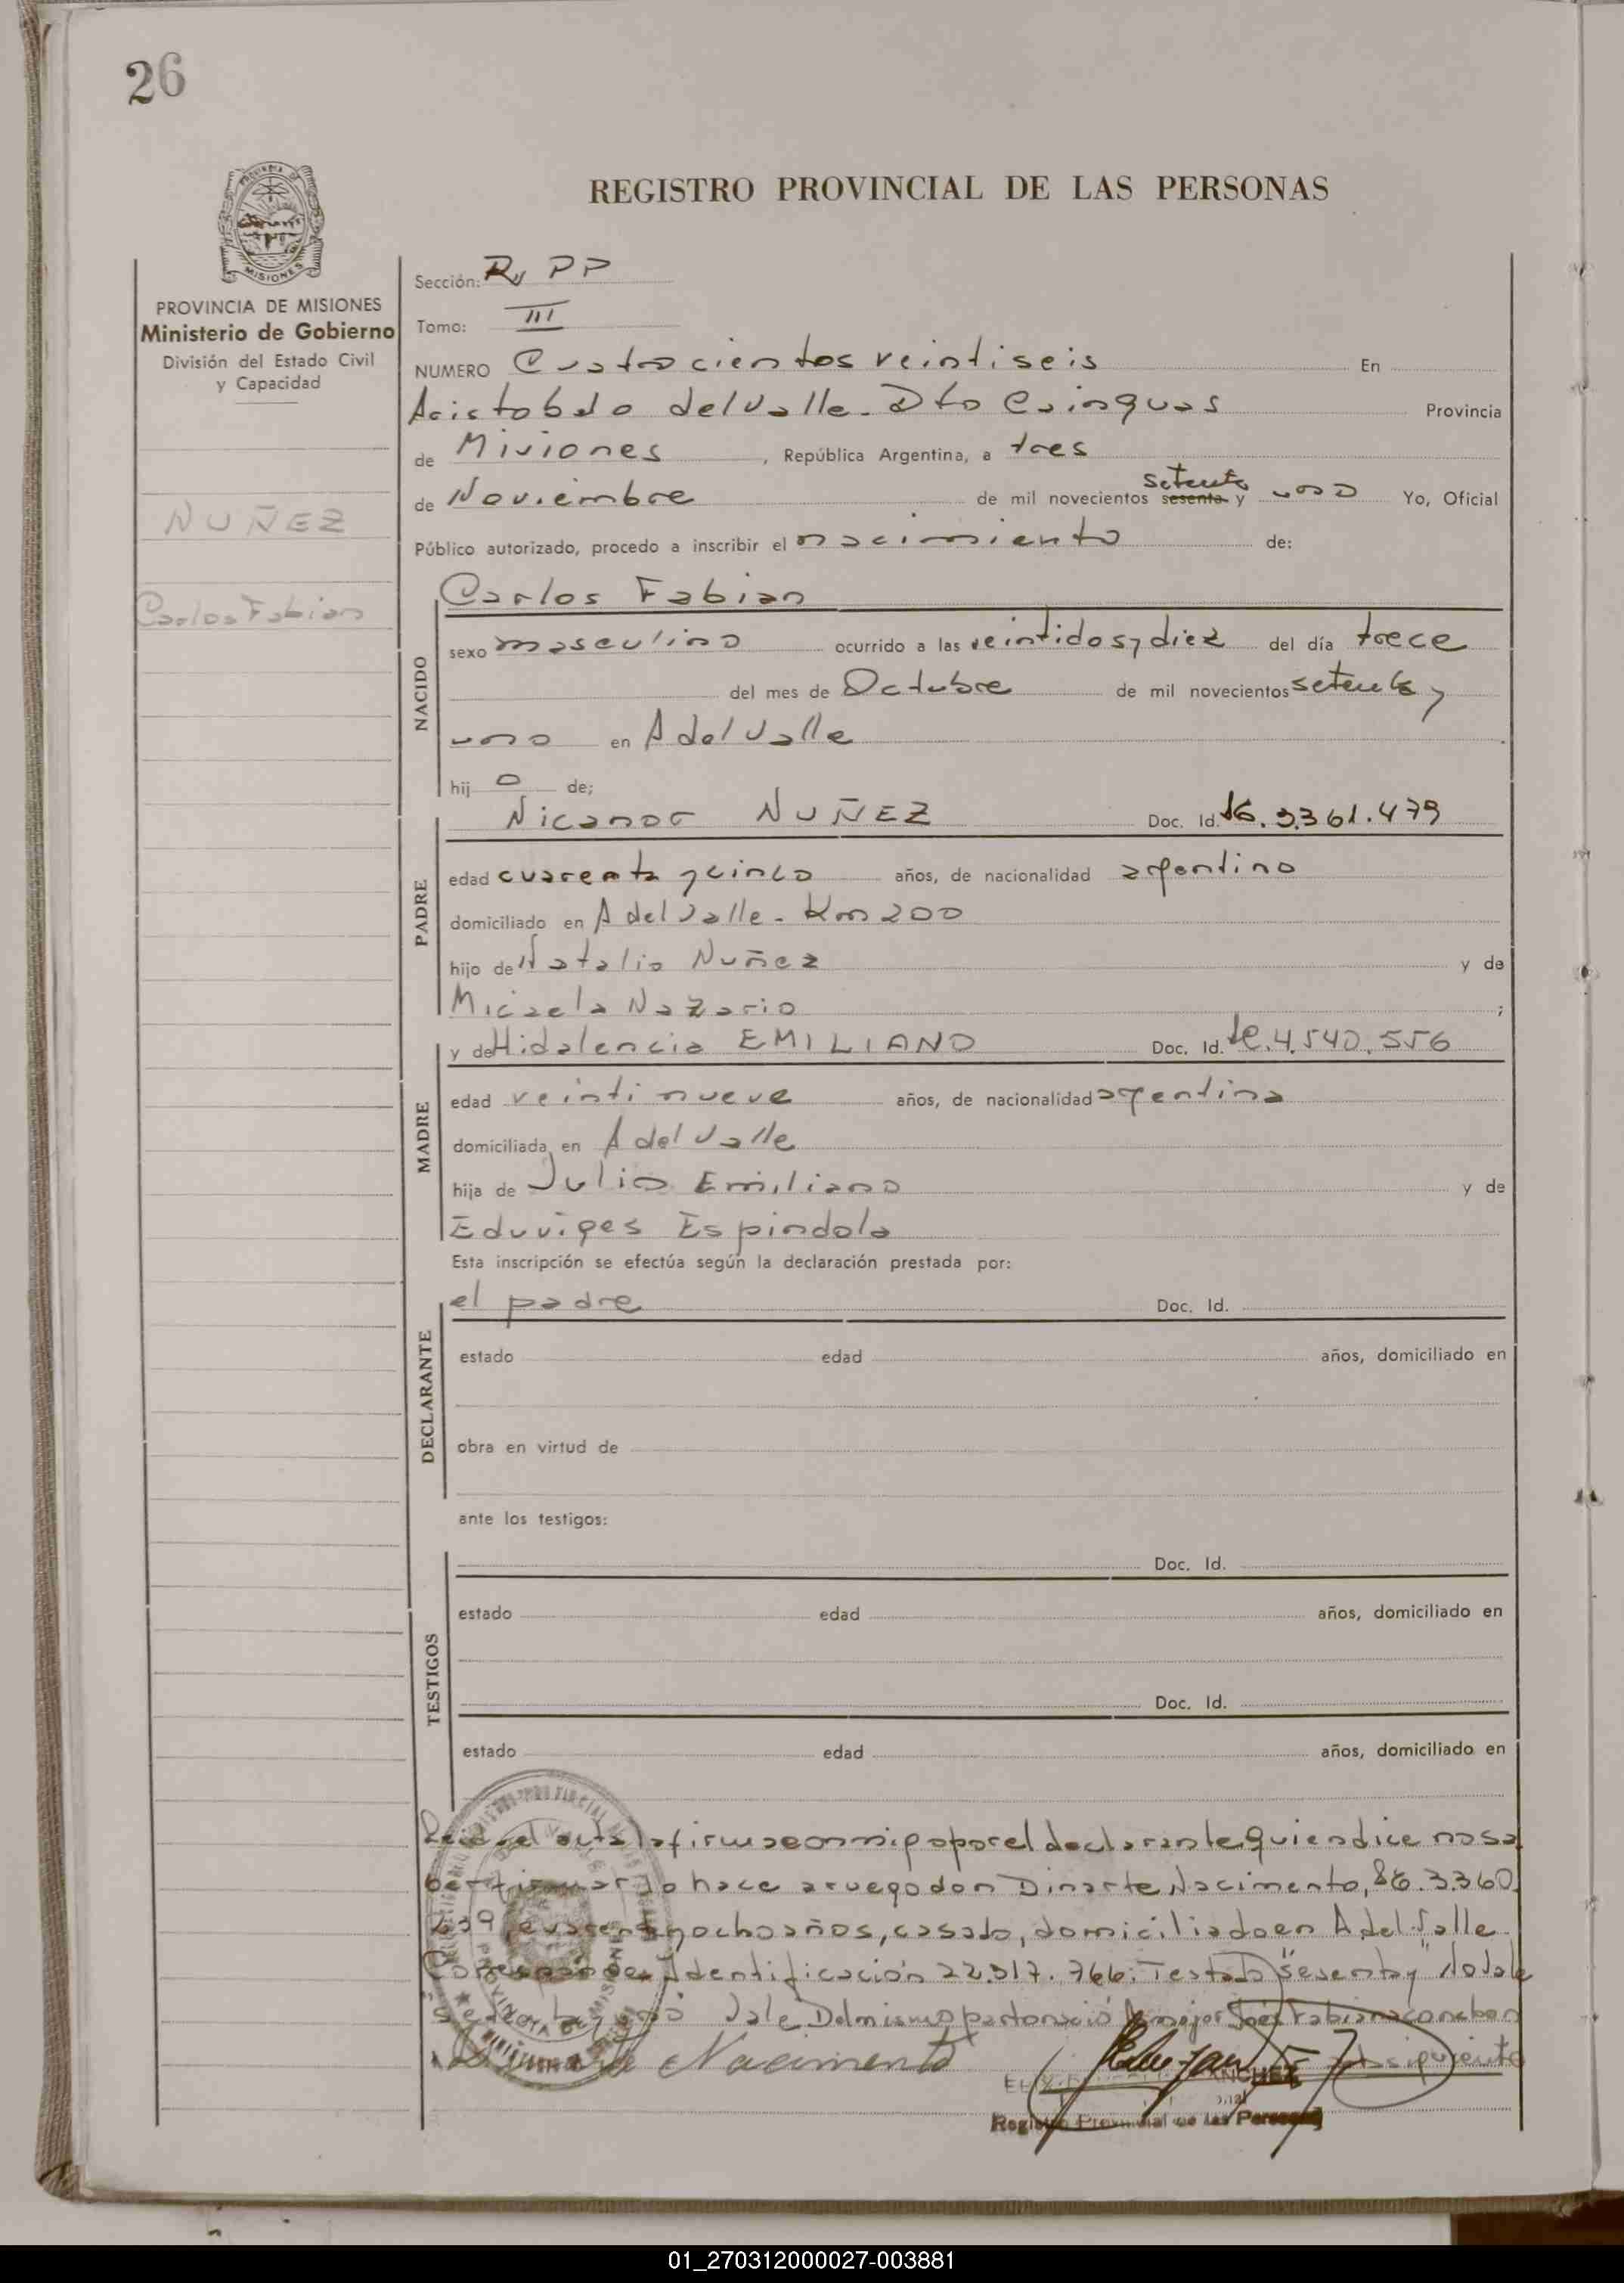 26
REGISTRO PROVINCIAL DE LAS PERSONAS
PROVINCIA DE MISIONES
Ministerio de Gobierno
División del Estado Civil
y Capacidad
NUÑEZ
Carlos Fabian
Sección: R. PP
Tomo: III
NUMERO Cuatrocientos veintiseis En
Aristobulo del Valle - Dto Cainguas Provincia
de Misiones, República Argentina, a tres
de Noviembre de mil novecientos sesenta setenta y uno Yo, Oficial
Público autorizado, procedo a inscribir el nacimiento de:
NACIDO
Carlos Fabian
sexo masculino ocurrido a las veintidos y diez del día trece
del mes de Octubre de mil novecientos setenta y
uno en A del Valle
hij o de;
PADRE
Nicanor NUÑEZ Doc. Id. 3.361.479
edad cuarenta y cinco años, de nacionalidad argentino
domiciliado en A del Valle - Km 200
hijo de Natalio Nuñez y de
Micaela Nazario ;
MADRE
y de Hidalencia EMILIANO Doc. Id. 4.540.556
edad veintinueve años, de nacionalidad argentina
domiciliada en A del Valle
hija de Julio Emiliano y de
Eduviges Espindola
Esta inscripción se efectúa según la declaración prestada por:
DECLARANTE
el padre Doc. Id.
estado edad años, domiciliado en
obra en virtud de
ante los testigos:
TESTIGOS
Doc. Id.
estado edad años, domiciliado en
Doc. Id.
estado edad años, domiciliado en
el acta la firma conmigo por el declarante quien dice no sa
lo hace a ruego don Dinarte Nacimento, 3.360.
cuarenta y ocho años, casado, domiciliado en A del Valle
Identificación 22.317.766. Testado "sesenta y" No vale
Vale Del mismo parto nació
Nacimento
siguiente
Registro Provincial de las Personas
01_270312000027-003881